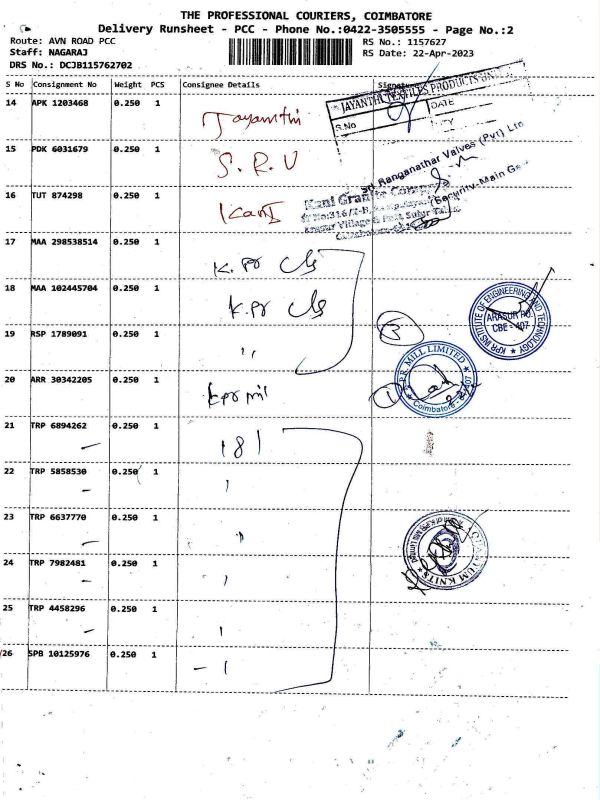 THE PROFESSIONAL COURIERS, COIMBATORE
Delivery Runsheet - PCC - Phone No.:0422-3505555 - Page No.:2
Route: AVN ROAD PCC
RS No.: 1157627
Staff: NAGARAJ
RS Date: 22-Apr-2023
DRS No.: DCJB115762702
S No Consignment No Weight PCS Consignee Details Signature
14 APK 1203468 0.250 1 Jayanthi
JAYANTHI TEXTILES PRODUCTS UNIT
S.No DATE
15 PDK 6031679 0.250 1 S.R.V
Sri Ranganathar Valves (Pvt) Ltd
(Security-Main
16 TUT 874298 0.250 1 Kani
Kani Granite Company
17 MAA 298538514 0.250 1 K.pr clg
18 MAA 102445704 0.250 1 K.pr clg
KPR INSTITUTE OF ENGINEERING AND TECHNOLOGY
ARASUR PO.
CBE - 407
19 RSP 1789091 0.250 1 "
3
20 ARR 30342205 0.250 1 kpr mil
1
K.P.R. MILL LIMITED
Coimbatore-407
21 TRP 6894262 0.250 1 181
22 TRP 5858530 0.250 1
23 TRP 6637770 0.250 1
QUANTUM KNITS
24 TRP 7982481 0.250 1
25 TRP 4458296 0.250 1
26 SPB 10125976 0.250 1